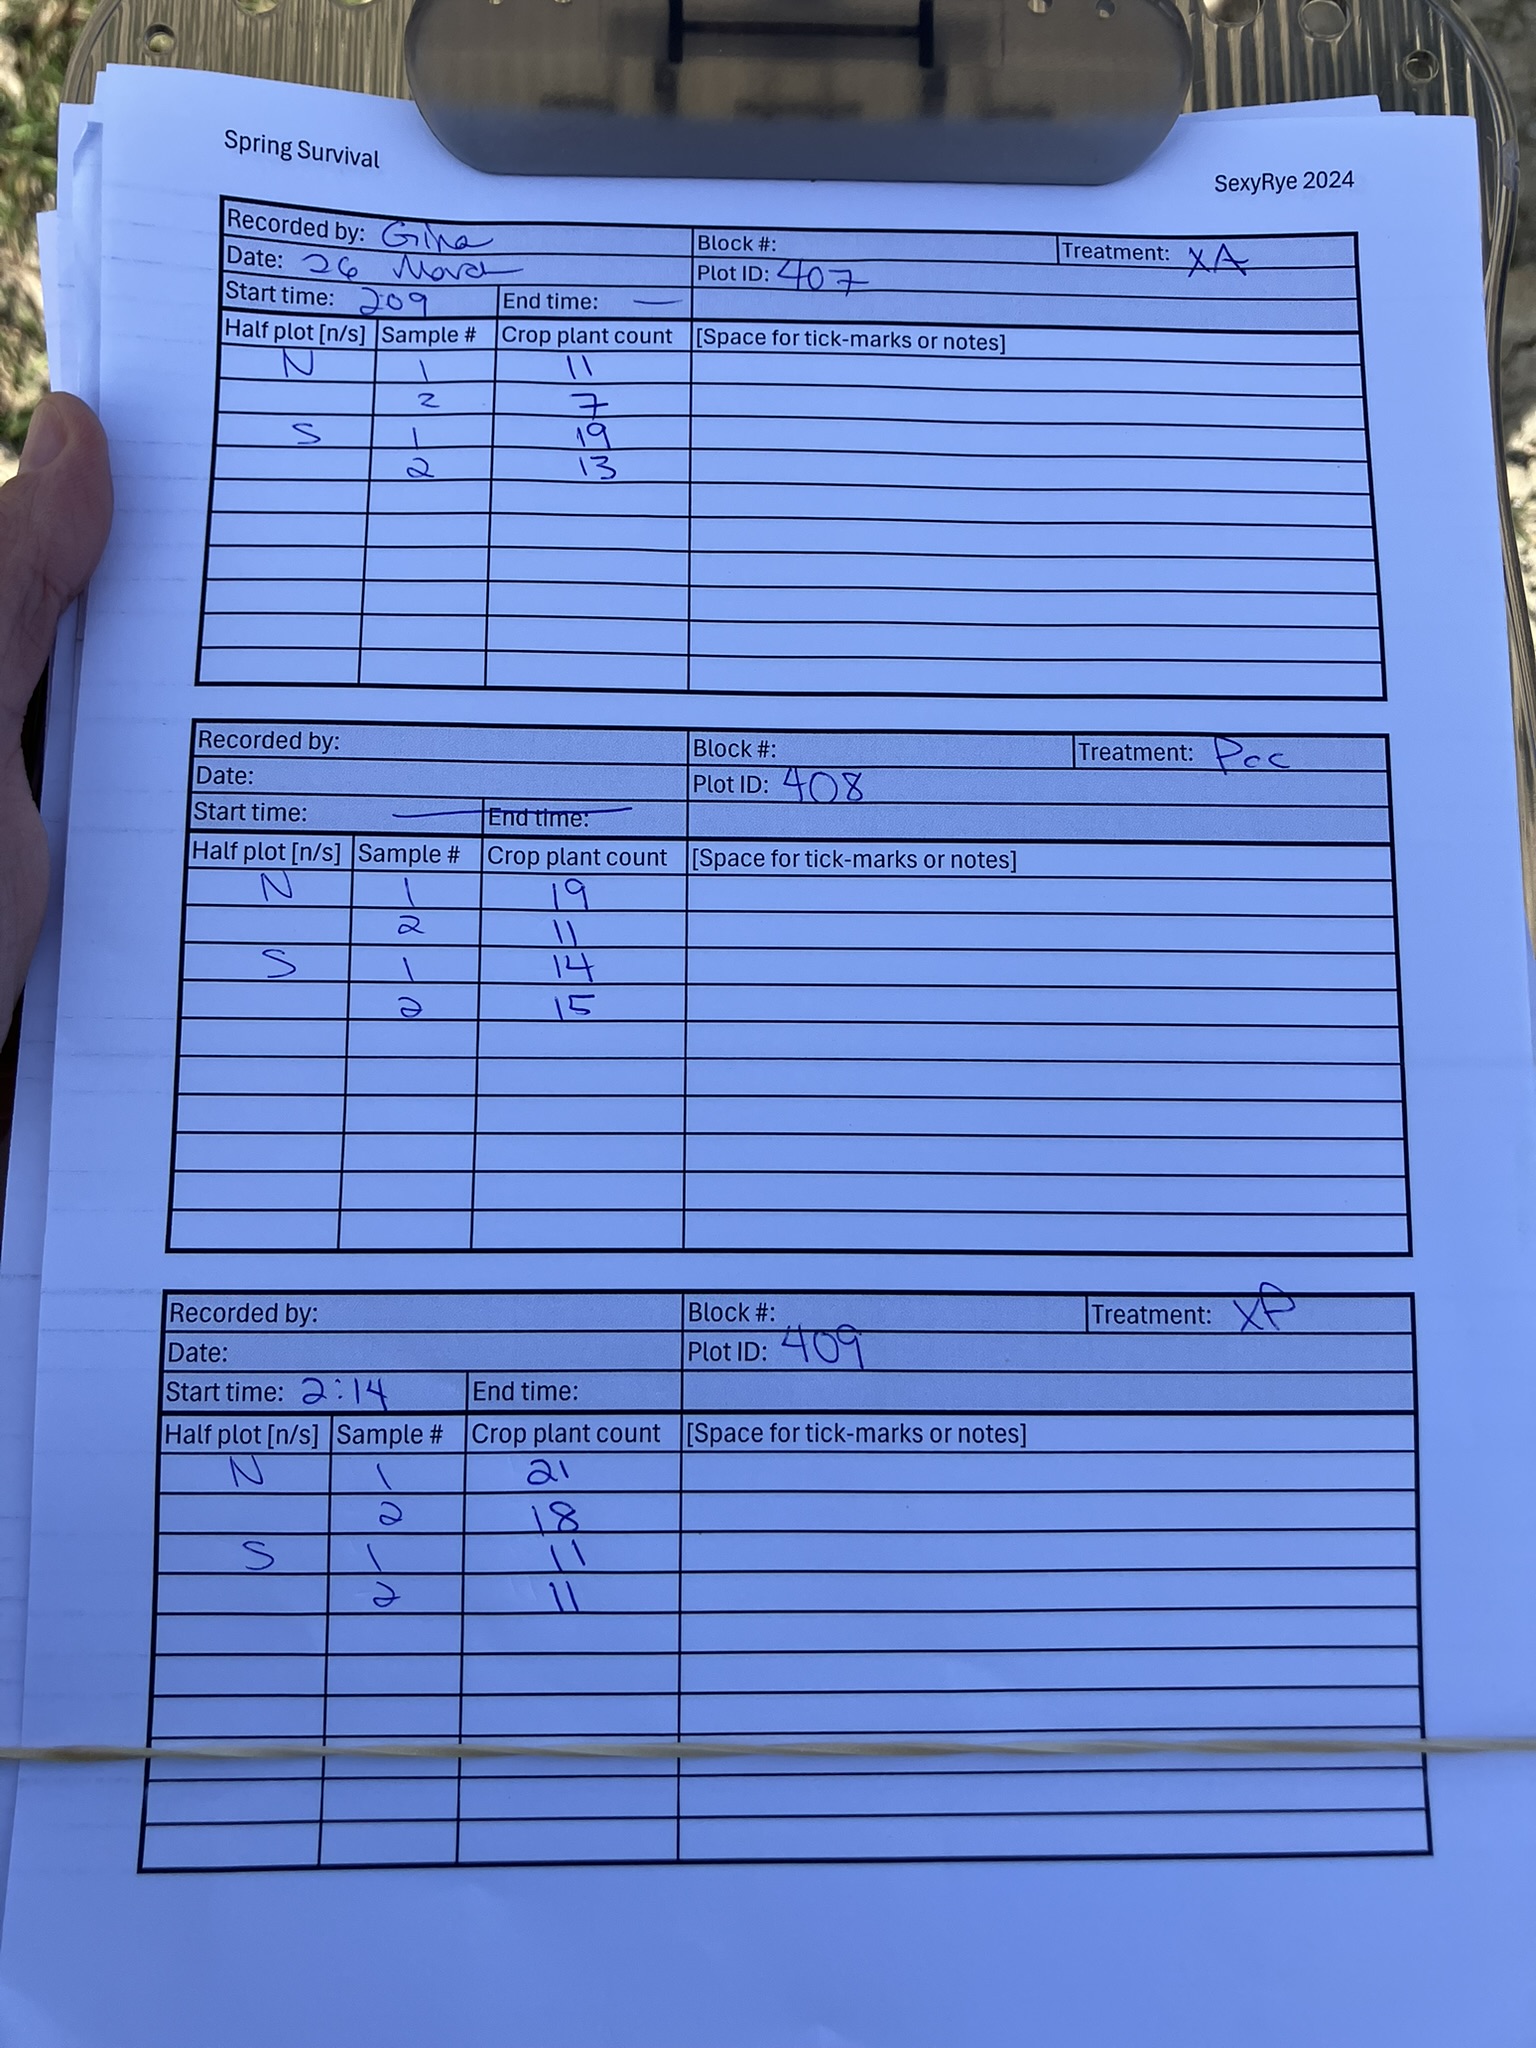 Spring Survival
SexyRye 2024
Recorded by: Gina Block #: Treatment: XA
Date: 26 March Plot ID: 407
Start time: 209 End time: —
Half plot [n/s] Sample # Crop plant count [Space for tick-marks or notes]
N 1 11
2 7
S 1 19
2 13
Recorded by: Block #: Treatment: Pcc
Date: Plot ID: 408
Start time: — End time:
Half plot [n/s] Sample # Crop plant count [Space for tick-marks or notes]
N 1 19
2 11
S 1 14
2 15
Recorded by: Block #: Treatment: XP
Date: Plot ID: 409
Start time: 2:14 End time:
Half plot [n/s] Sample # Crop plant count [Space for tick-marks or notes]
N 1 21
2 18
S 1 11
2 11